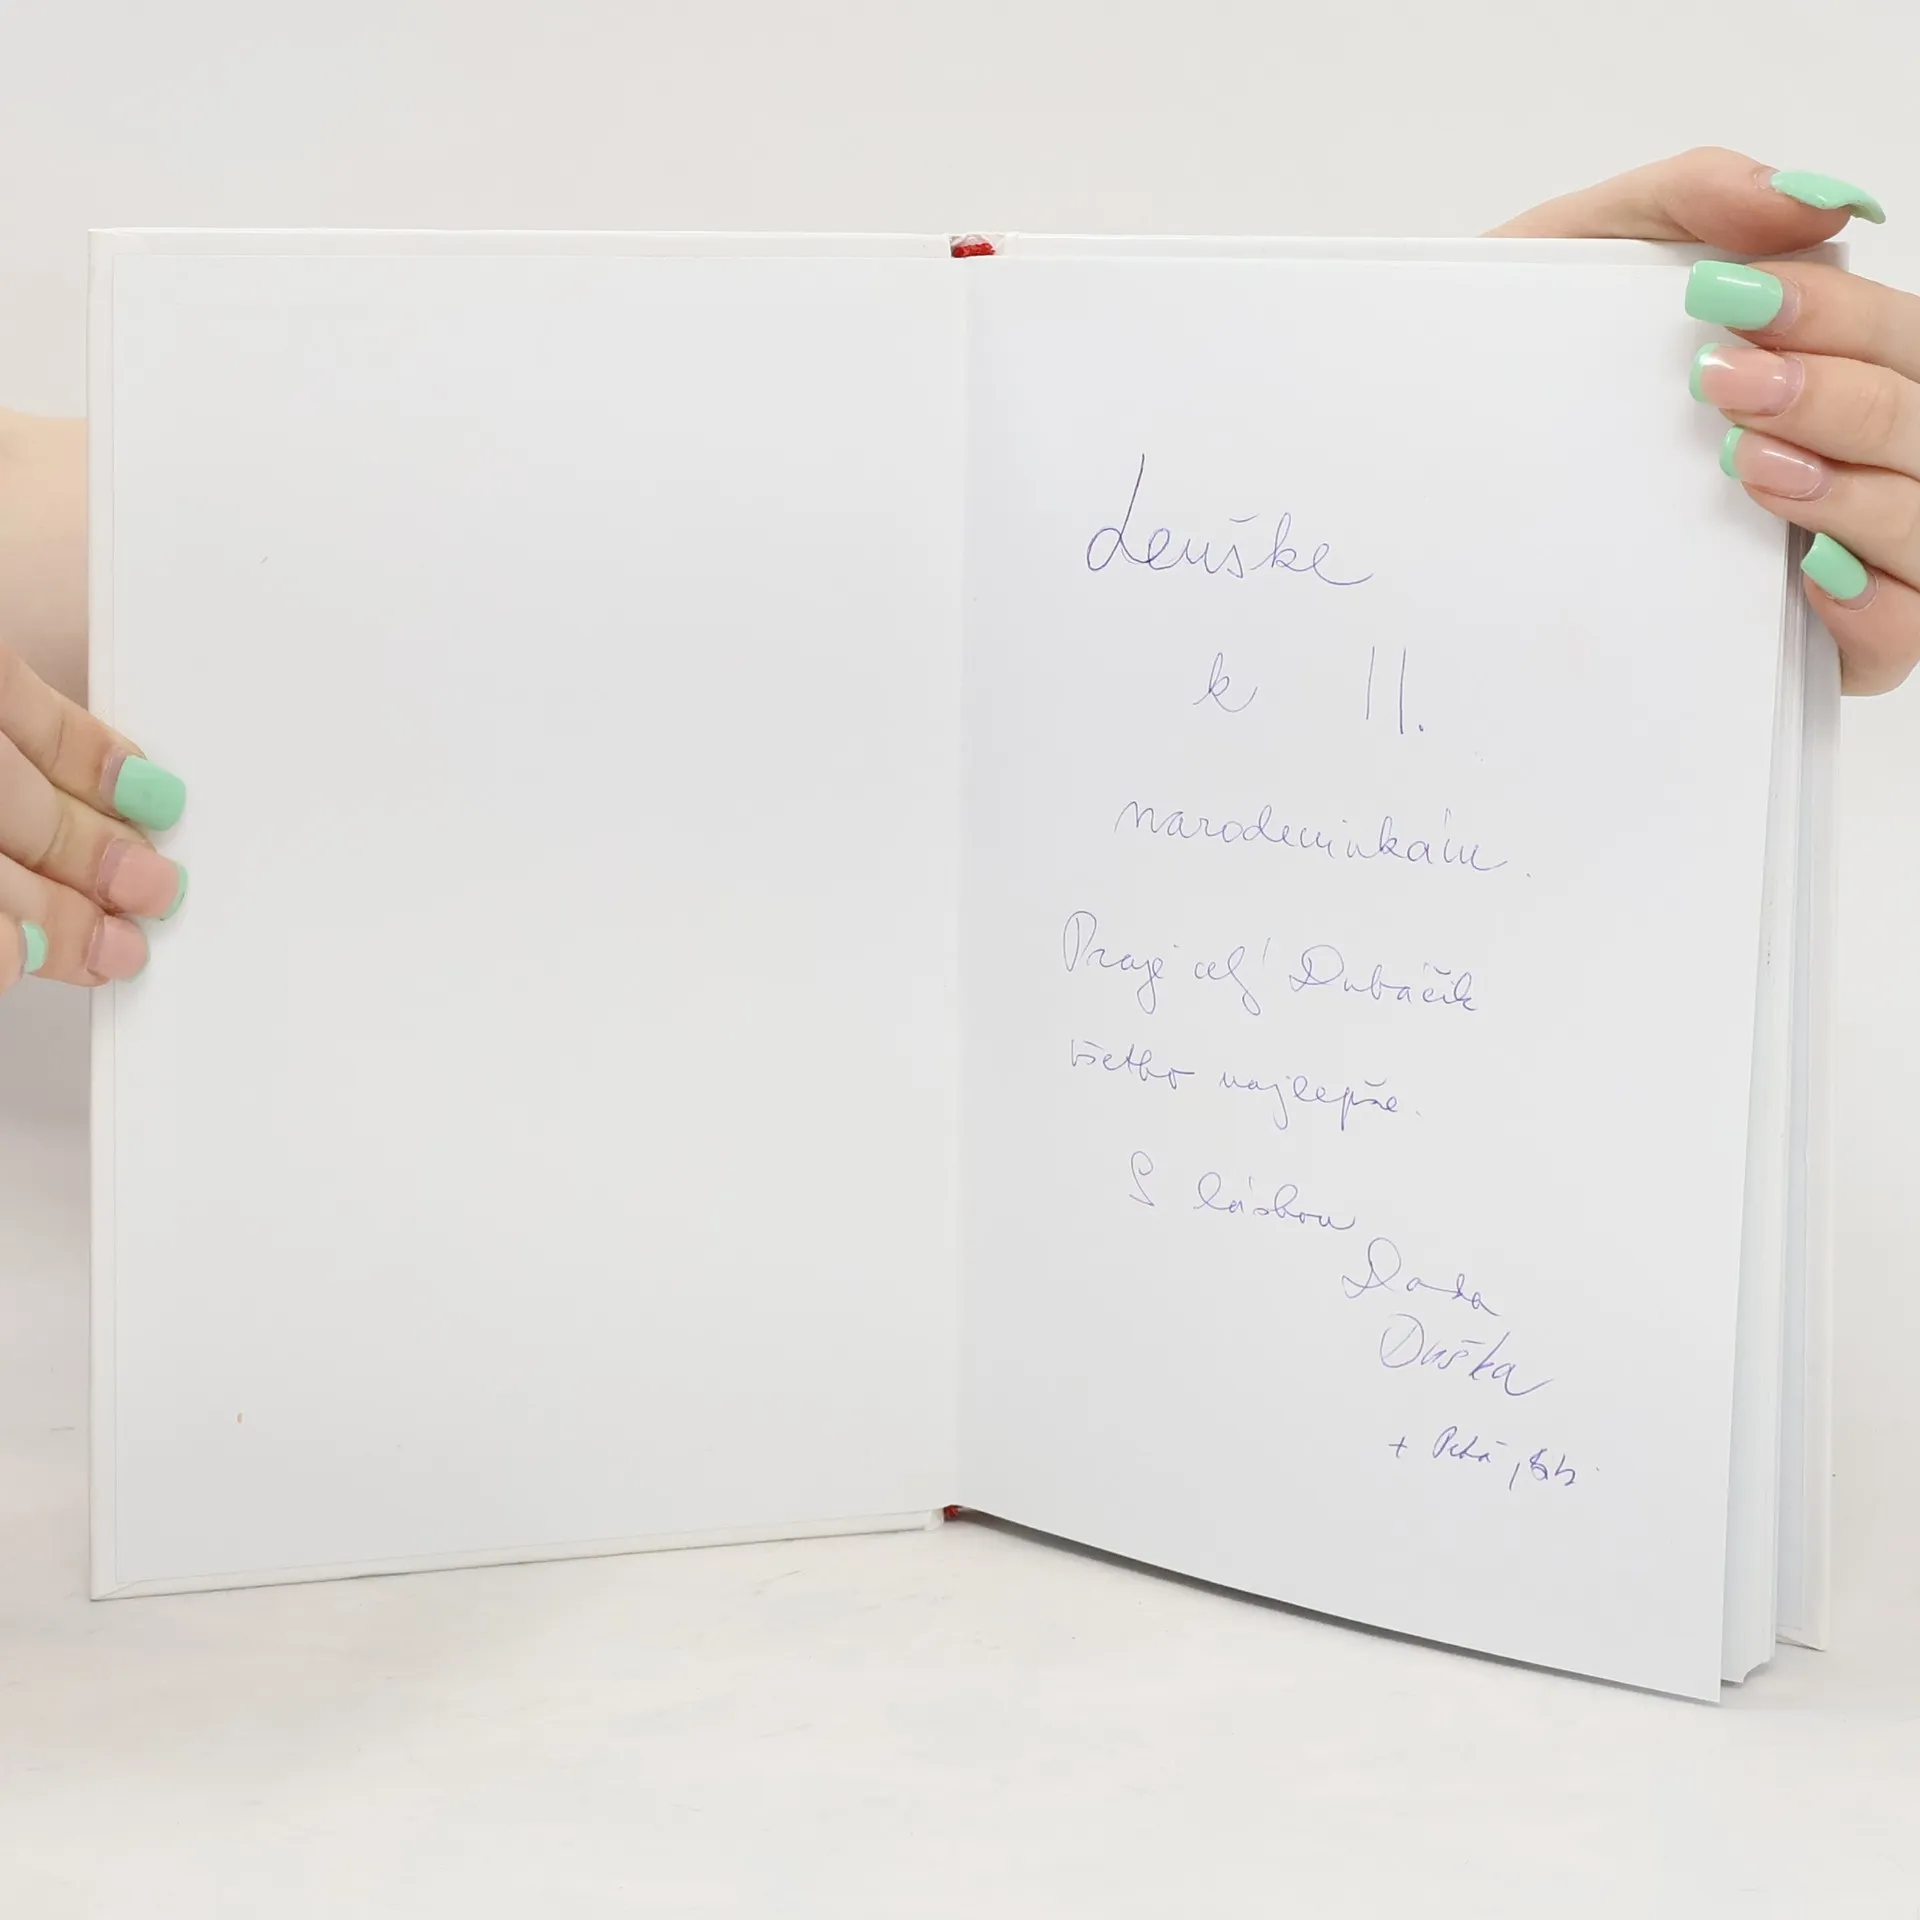 Lenuške
k 11.
narodeninkám.
Praje celý Dubáčik
všetko najlepšie.
S láskou
Dada
Duška
+ Peťa